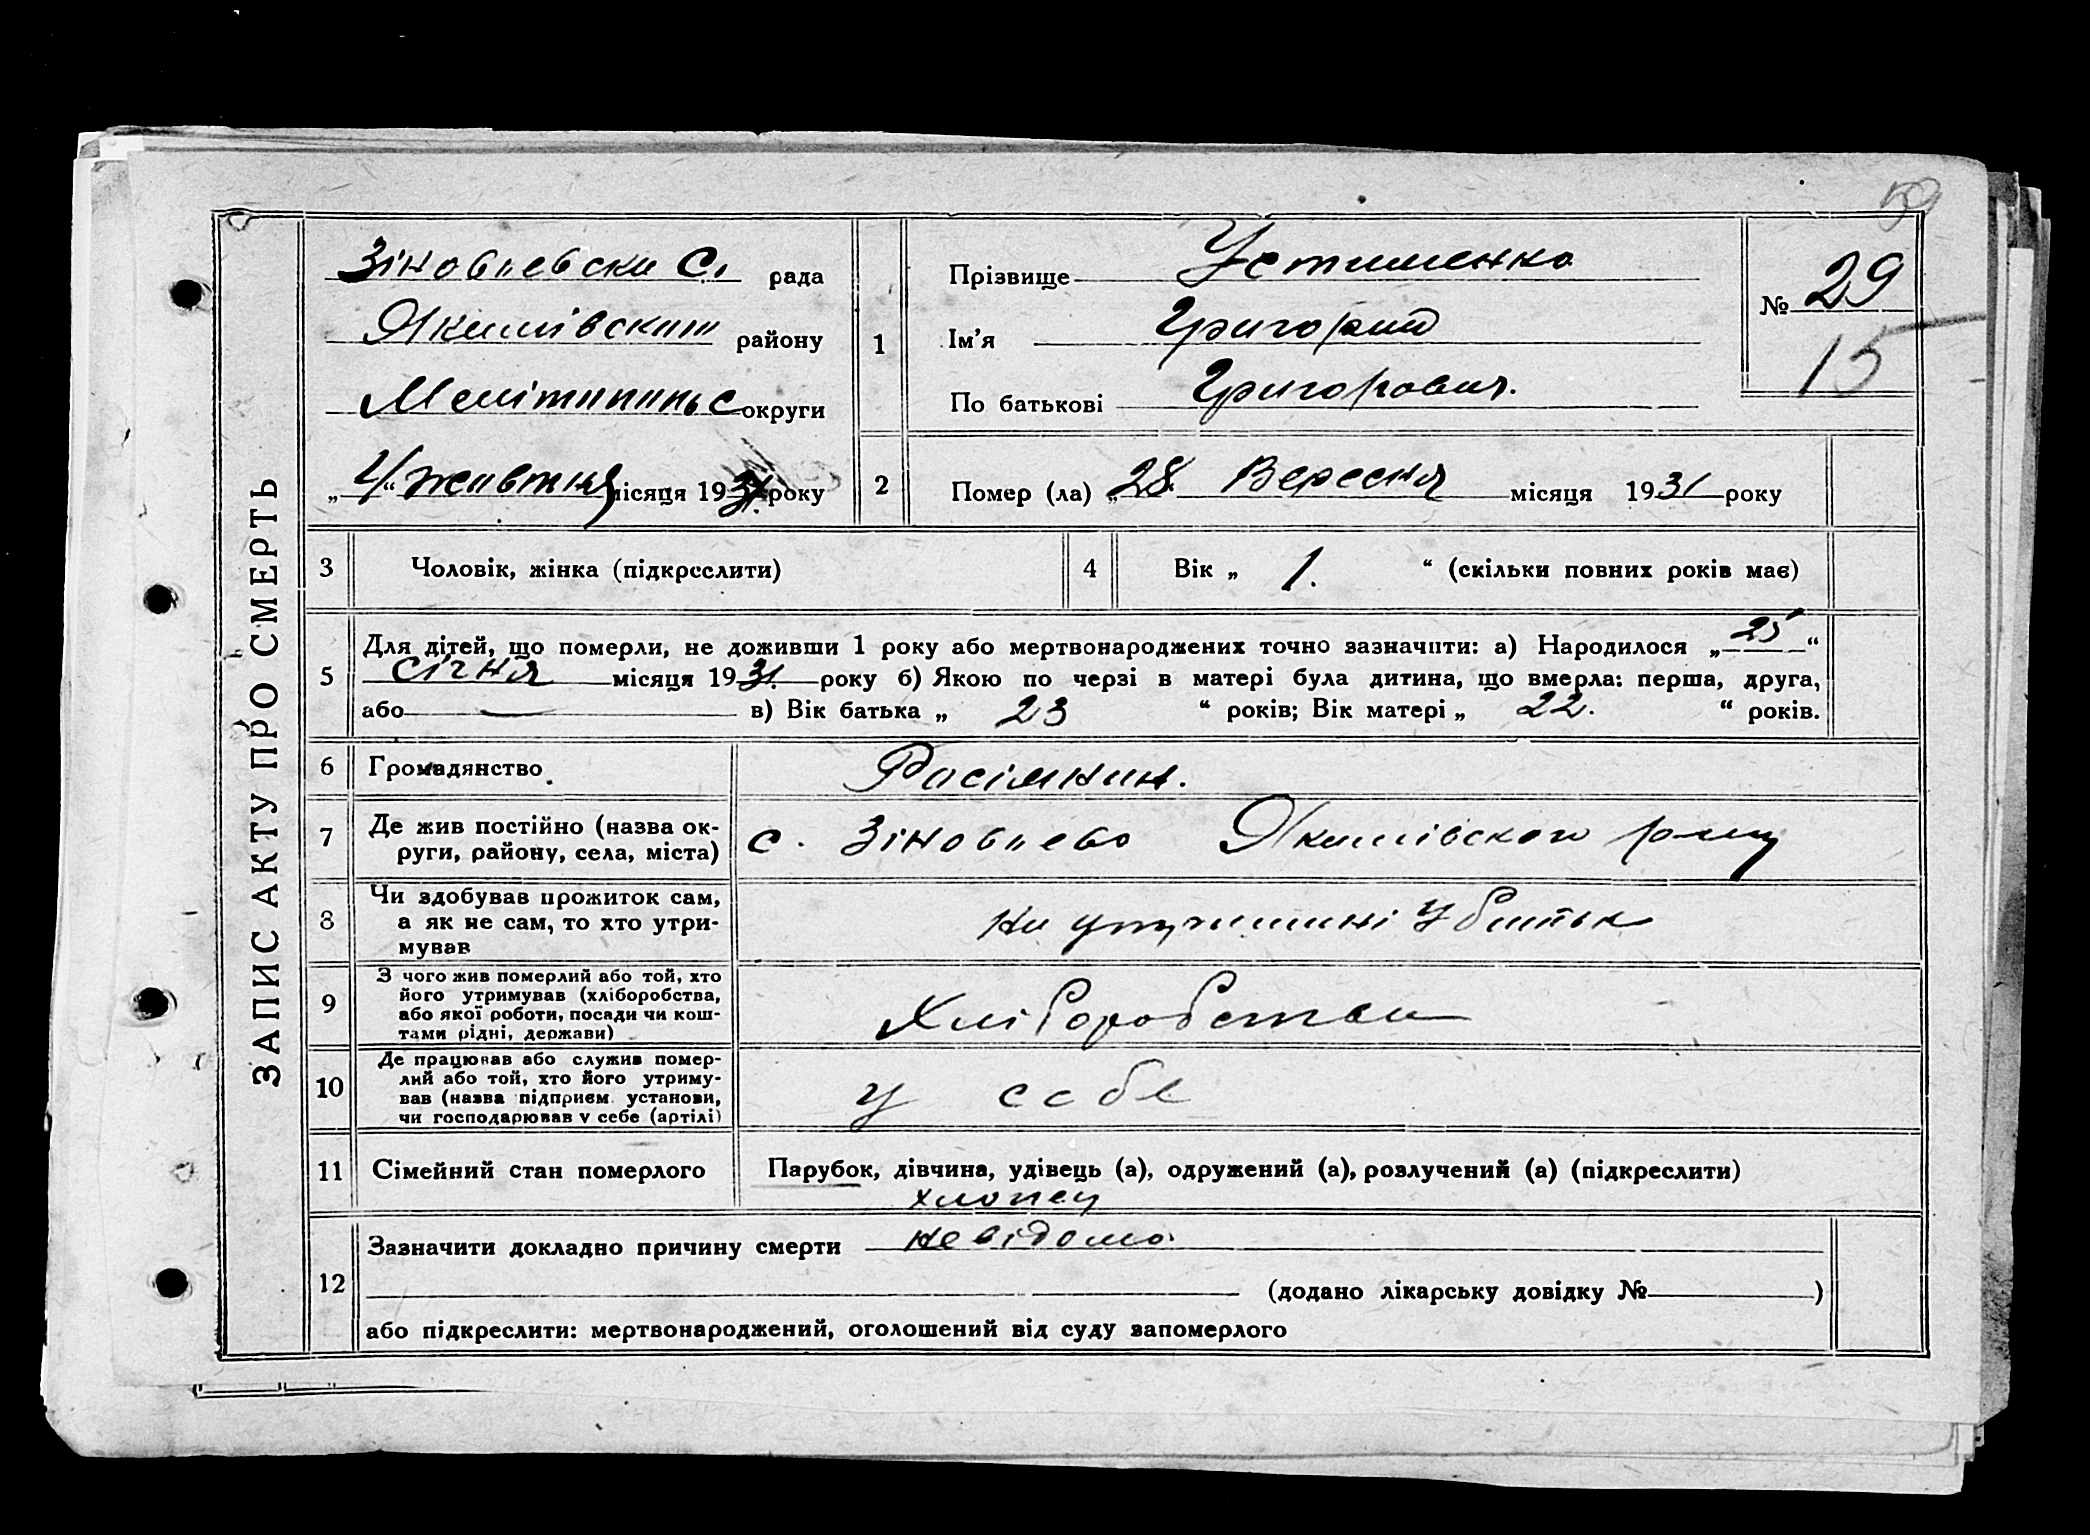 59
ЗАПИС АКТУ ПРО СМЕРТЬ
Зіновьевска С. рада
Якимівский району
Мелітипильс округи
„4“ жовтня місяця 1931 року
1
Прізвище Устименко
Ім'я Григорий
По батькові Григорович.
№ 29
15
2 Помер (ла) „28 Вересня місяця 1931 року
3 Чоловік, жінка (підкреслити)
4 Вік „ 1. “ (скільки повних років має)
5 Для дітей, що померли, не доживши 1 року або мертвонароджених точно зазначити: а) Народилося „25“
січня місяця 1931. року б) Якою по черзі в матері була дитина, що вмерла: перша, друга,
або — в) Вік батька „ 23 “ років; Вік матері „ 22. “ років.
6 Громадянство. Росіянин.
7 Де жив постійно (назва ок-
руги, району, села, міста)
с. Зіновьево Якимівского р-ну
8 Чи здобував прожиток сам,
а як не сам, то хто утри-
мував
На утримині у батька
9 З чого жив померлий або той, хто
його утримував (хліборобства,
або якої роботи, посади чи кош-
тами рідні, держави)
Хліборобства
10 Де працював або служив помер-
лий або той, хто його утриму-
вав (назва підприєм. установи,
чи господарював у себе (артілі)
у себе
11 Сімейний стан померлого
Парубок, дівчина, удівець (а), одружений (а), розлучений (а) (підкреслити)
хлопец
12 Зазначити докладно причину смерти невідомо
(додано лікарську довідку № )
або підкреслити: мертвонароджений, оголошений від суду запомерлого